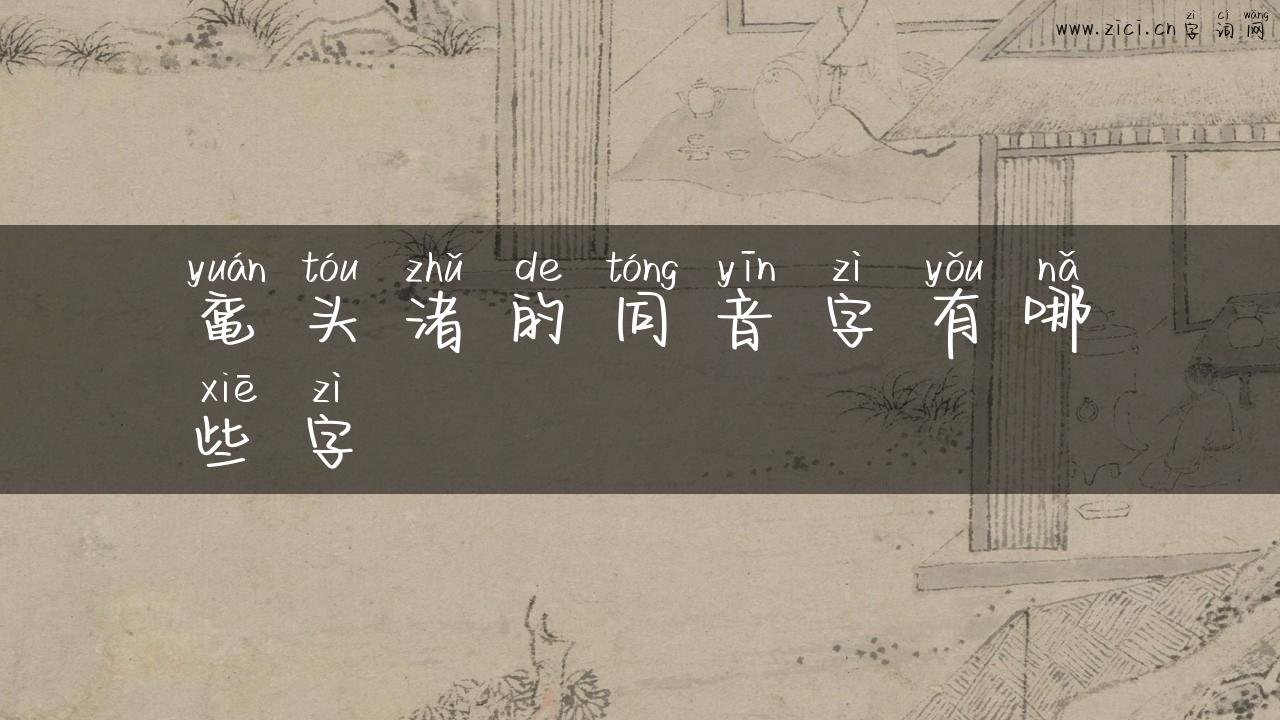 zì cí wǎng
www.zici.cn 字 词 网
yuán tóu zhǔ de tóng yīn zì yǒu nǎ
鼋 头 渚 的 同 音 字 有 哪
xiē zì
些 字